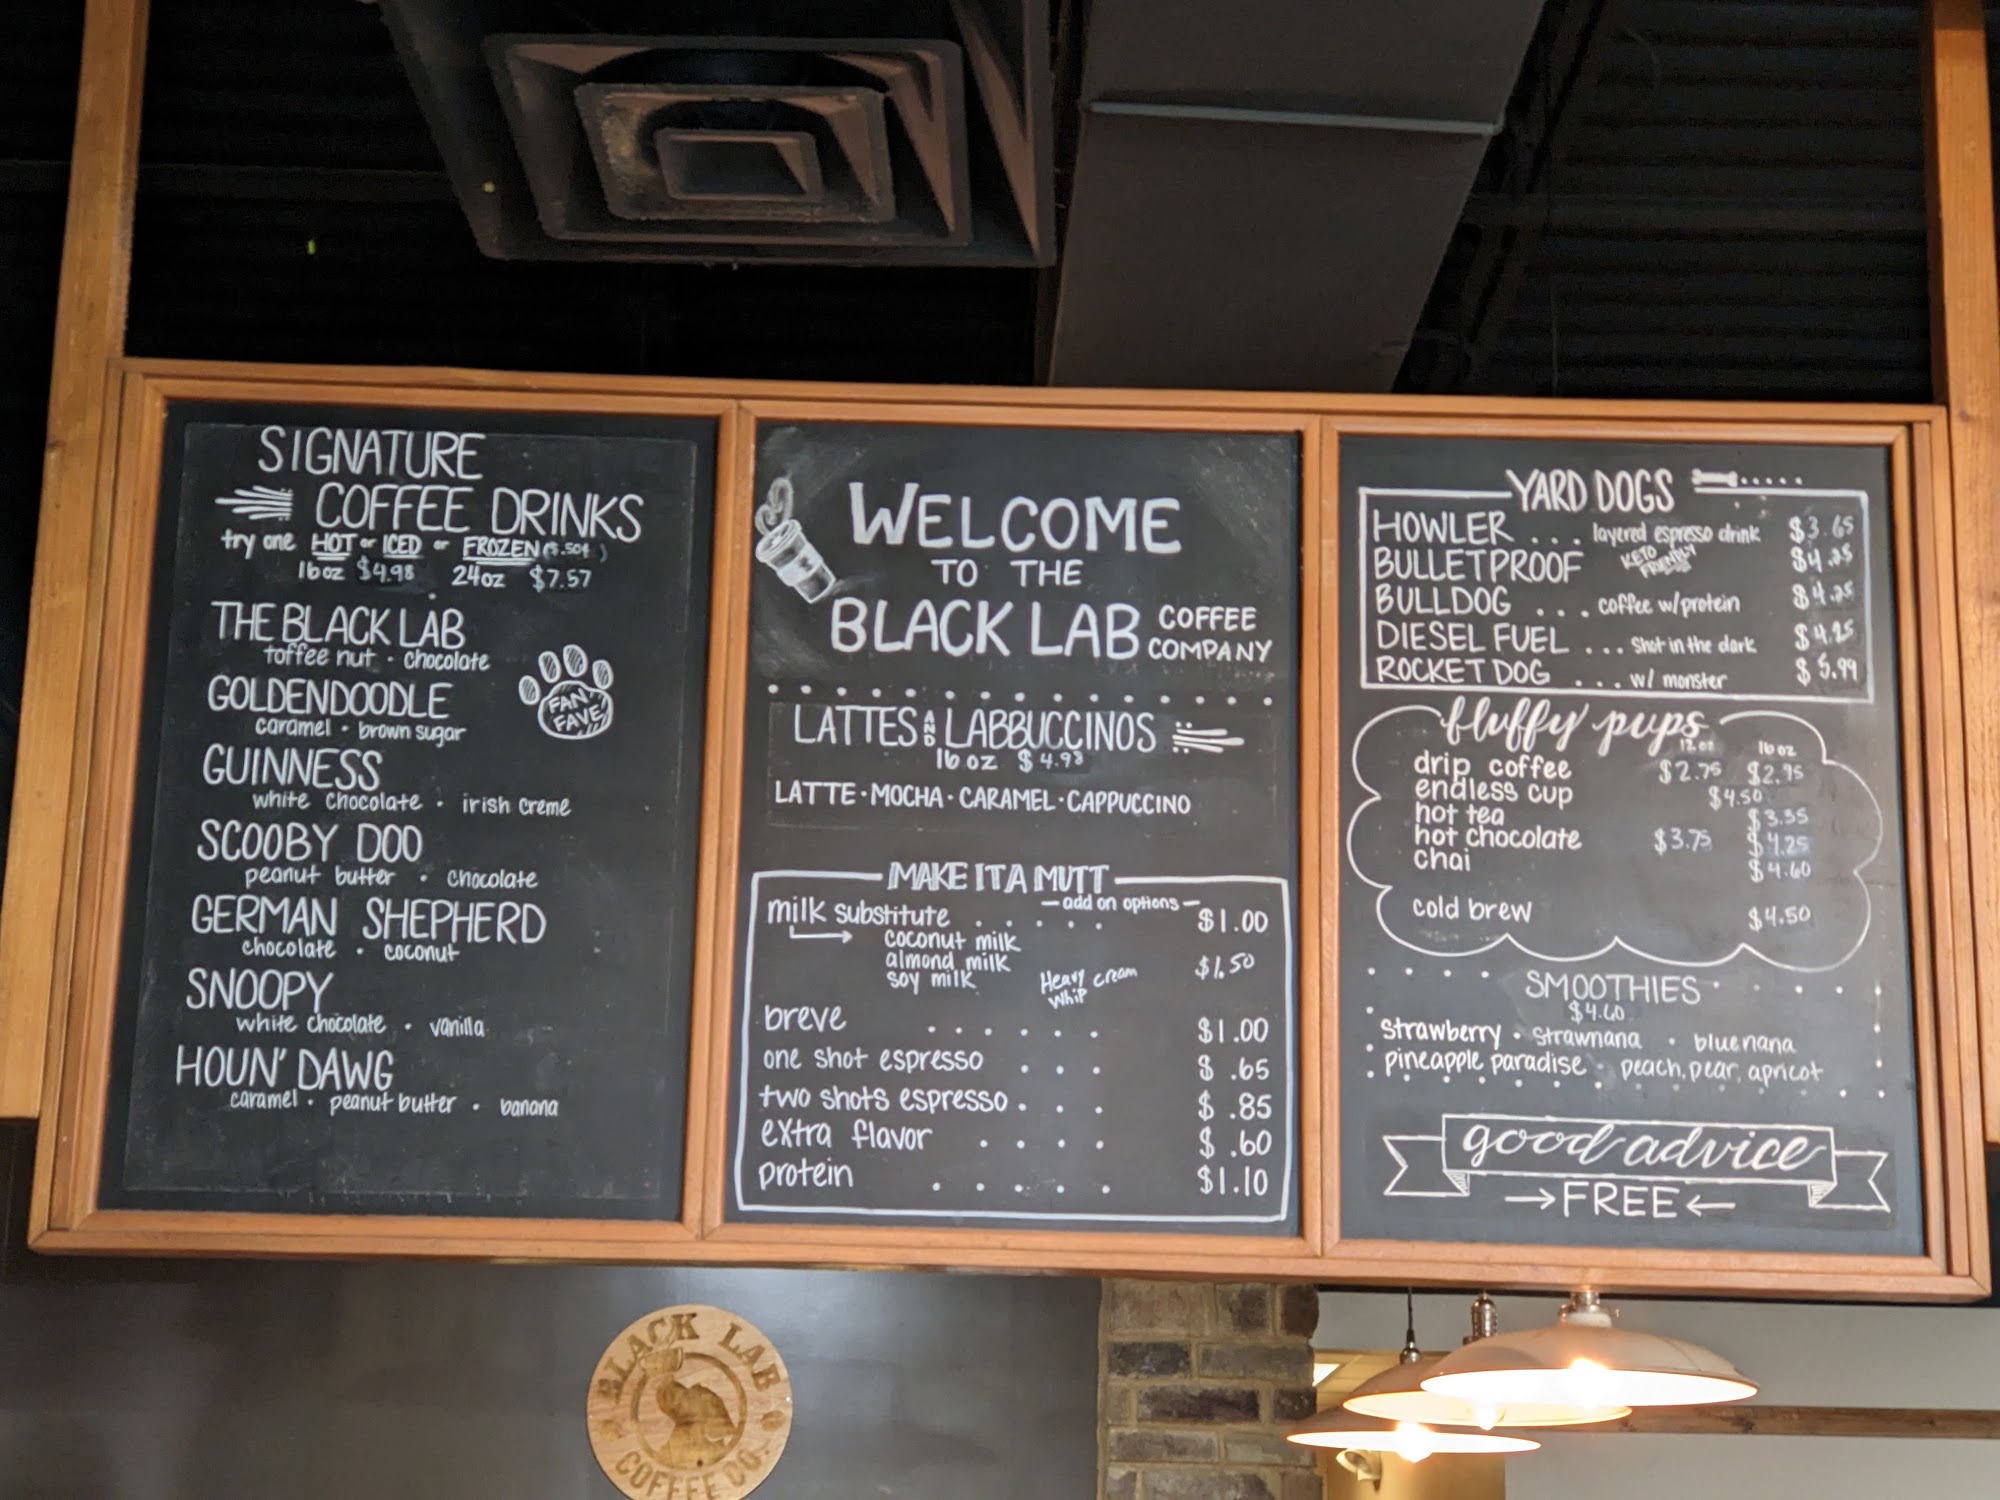 SIGNATURE
COFFEE DRINKS
try one HOT or ICED or FROZEN ($.50¢)
16oz $4.98 24oz $7.57
THE BLACK LAB
toffee nut • chocolate
GOLDENDOODLE
caramel • brown sugar
FAN
FAVE
GUINNESS
white chocolate • irish creme
SCOOBY DOO
peanut butter • chocolate
GERMAN SHEPHERD
chocolate • coconut
SNOOPY
white chocolate • vanilla
HOUN' DAWG
caramel • peanut butter • banana
WELCOME
TO THE
BLACK LAB COFFEE COMPANY
LATTES AND LABBUCCINOS
16 oz $4.98
LATTE • MOCHA • CARAMEL • CAPPUCCINO
MAKE IT A MUTT
— add on options —
milk substitute . . . . . $1.00
coconut milk
almond milk
soy milk
Heavy cream $1.50
whip
breve . . . . . $1.00
one shot espresso . . . $ .65
two shots espresso . . . $ .85
extra flavor . . . . $ .60
protein . . . . . $1.10
YARD DOGS
HOWLER . . . layered espresso drink $3.65
BULLETPROOF KETO FRIENDLY $4.25
BULLDOG . . . coffee w/protein $4.25
DIESEL FUEL . . . shot in the dark $4.25
ROCKET DOG . . . w/ monster $5.99
fluffy pups
12 oz 16 oz
drip coffee $2.75 $2.95
endless cup $4.50
hot tea $3.35
hot chocolate $3.75 $4.25
chai $4.60
cold brew $4.50
SMOOTHIES
$4.60
strawberry • strawnana • bluenana
pineapple paradise • peach, pear, apricot
good advice
→ FREE ←
BLACK LAB
COFFEE CO.